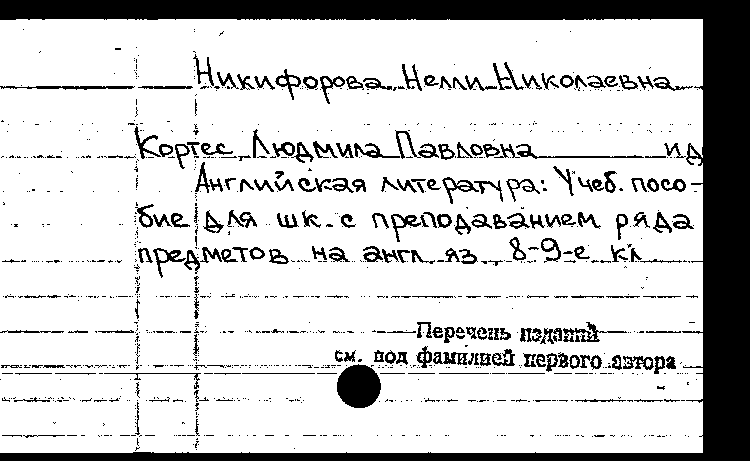 Никифорова, Нелли Николаевна
Кортес, Людмила Павловна и д
Английская литература: Учеб. посо-
бие для шк. с преподаванием ряда
предметов на англ. яз., 8-9-е кл
Перечень изданий
см. под фамилией первого автора